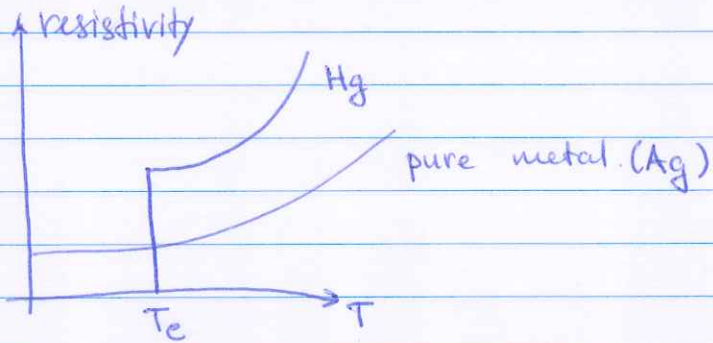 resistivity
Hg
pure metal. (Ag)
Tc
T